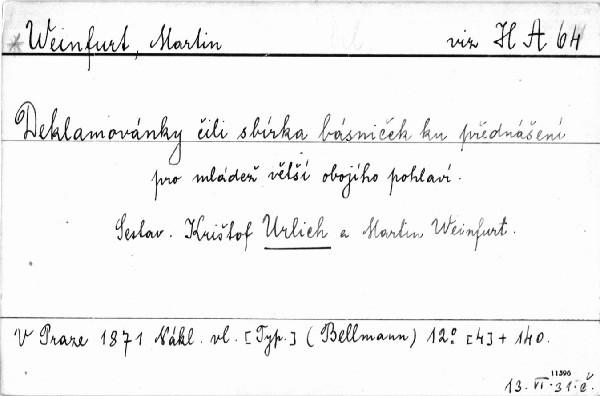 * Weinfurt, Martin viz H A 64
Deklamovánky čili sbírka básniček ku přednášení
pro mládež větší obojího pohlaví.
Sestav. Krištof Urlich a Martin Weinfurt.
V Praze 1871 Nákl. vl. [Typ.] (Bellmann) 12° [4] + 140.
11596
13. VI. 31. č.